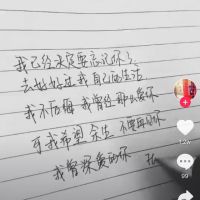 我已经决定要忘记你了
去好好过我自己的生活
我不后悔 我曾经那么爱你
可我希望 余生 不要再见你
我曾深爱的你
12W
99